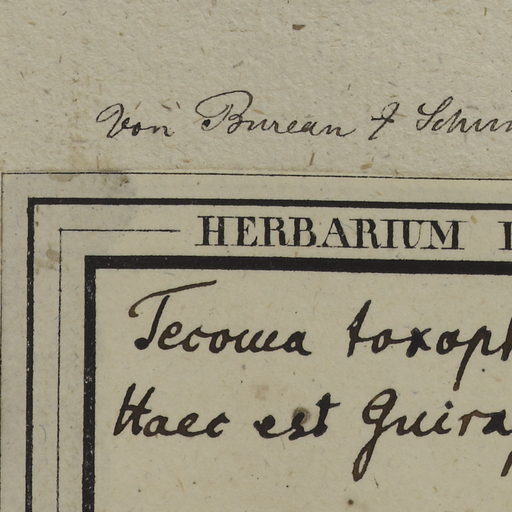 Von Bureau & Schum
HERBARIUM
Tecoma toxoph
Haec est Guira